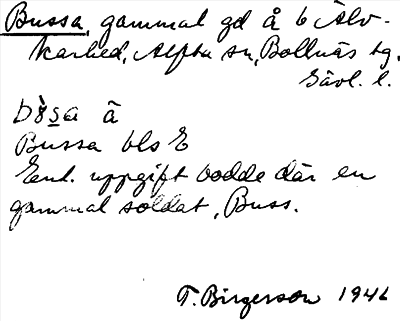 Bussa, gammal gd å 6 Älv-
karhed, Alfta sn, Bollnäs tg.
Gävl. l.
bùsa å
Bussa bls E
Enl. uppgift bodde där en
gammal soldat, Buss.
T. Birgerson 1946